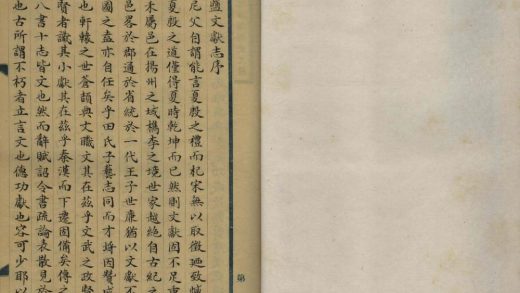 鹽文獻志序
尼父自謂能言夏殷之禮而杞宋無以取徵廼致慽
夏殷之道僅得夏時乾坤而已然則文獻固不足重
禾屬邑在揚州之域檇李之境世家越絕自古紀之
邑畧於郡通於省統於一代王子世廉猶以文獻不
國之盍亦自任矣乎田氏子藝志同而才因贊成
也軒轅之世蒼頡與文職文其在茲乎文武之政賢
賢者識其小獻其在茲乎秦漢而下遷固備矣傳之
八書十志皆文也然而辭賦詔令書疏論表散見於
也古所謂不朽者立言文也德功獻也容可少耶以
第